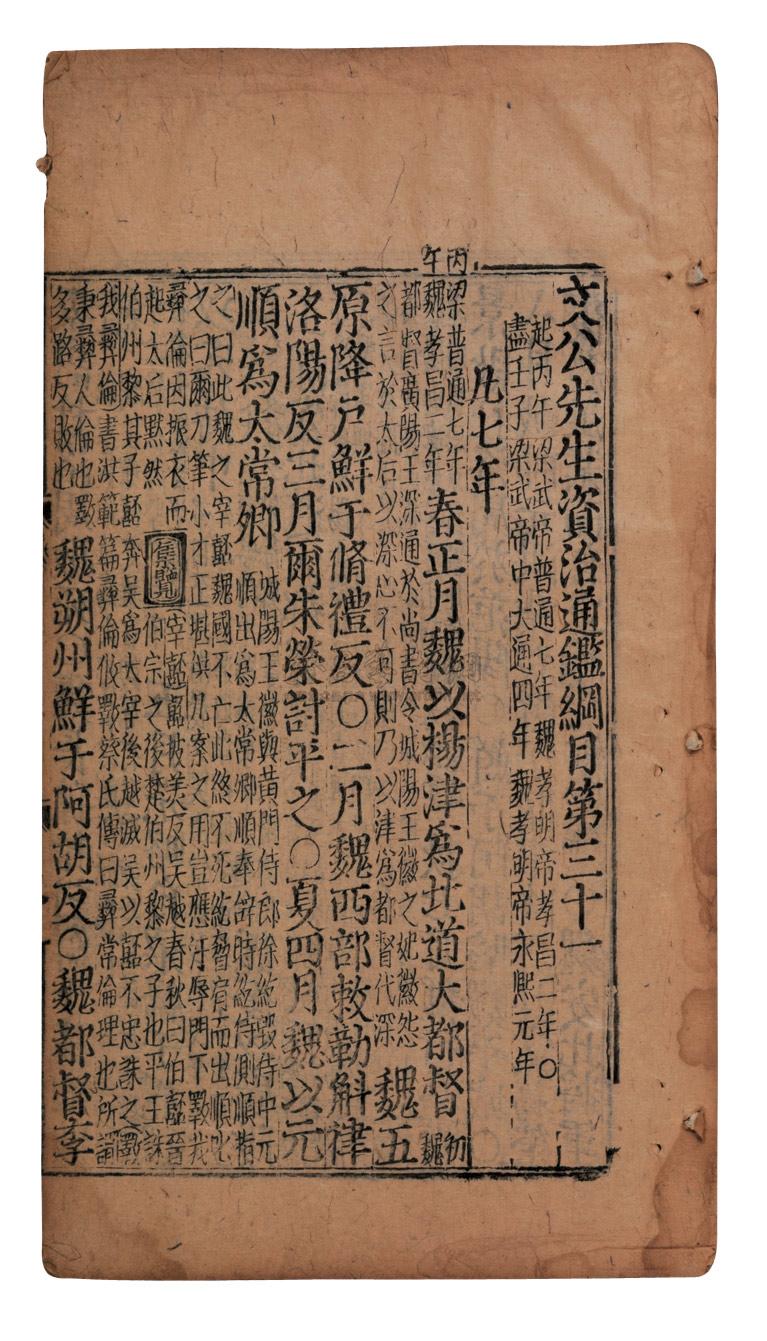 文公先生資治通鑑綱目第三十一
起丙午梁武帝普通七年魏孝明帝孝昌二年○
盡壬子梁武帝中大通四年魏孝明帝永熙元年
凡七年
丙午
梁普通七年
魏孝昌二年
春正月魏以楊津爲北道大都督
初魏
都督廣陽王深通於尚書令城陽王徽之妃徽怨
之言於太后以深心不可則乃以津爲都督代深
魏五
原降戶鮮于脩禮反○二月魏西部敕勒斛律
洛陽反三月爾朱榮討平之○夏四月魏以元
順爲太常卿
城陽王徽與黃門侍郎徐紇毀侍中元
順出爲太常卿順奉辤時紇侍側順指
之曰此魏之宰嚭魏國不亡此終不死紇脅肩而出順叱
之曰爾刀筆小才正堪供几案之用豈應汙辱門下斁我
彞倫因振衣而
起太后默然
集覽
宰嚭嚭披美反吳越春秋曰伯嚭晉
伯宗之後楚伯州黎之子也平王誅
伯州黎其子嚭奔吳爲太宰後越滅吳以嚭不忠誅之斁
我彞倫書洪範篇彞倫攸斁蔡氏傳曰彞常倫理也所謂
秉彞人倫也斁
多路反敗也
魏朔州鮮于阿胡反○魏都督李